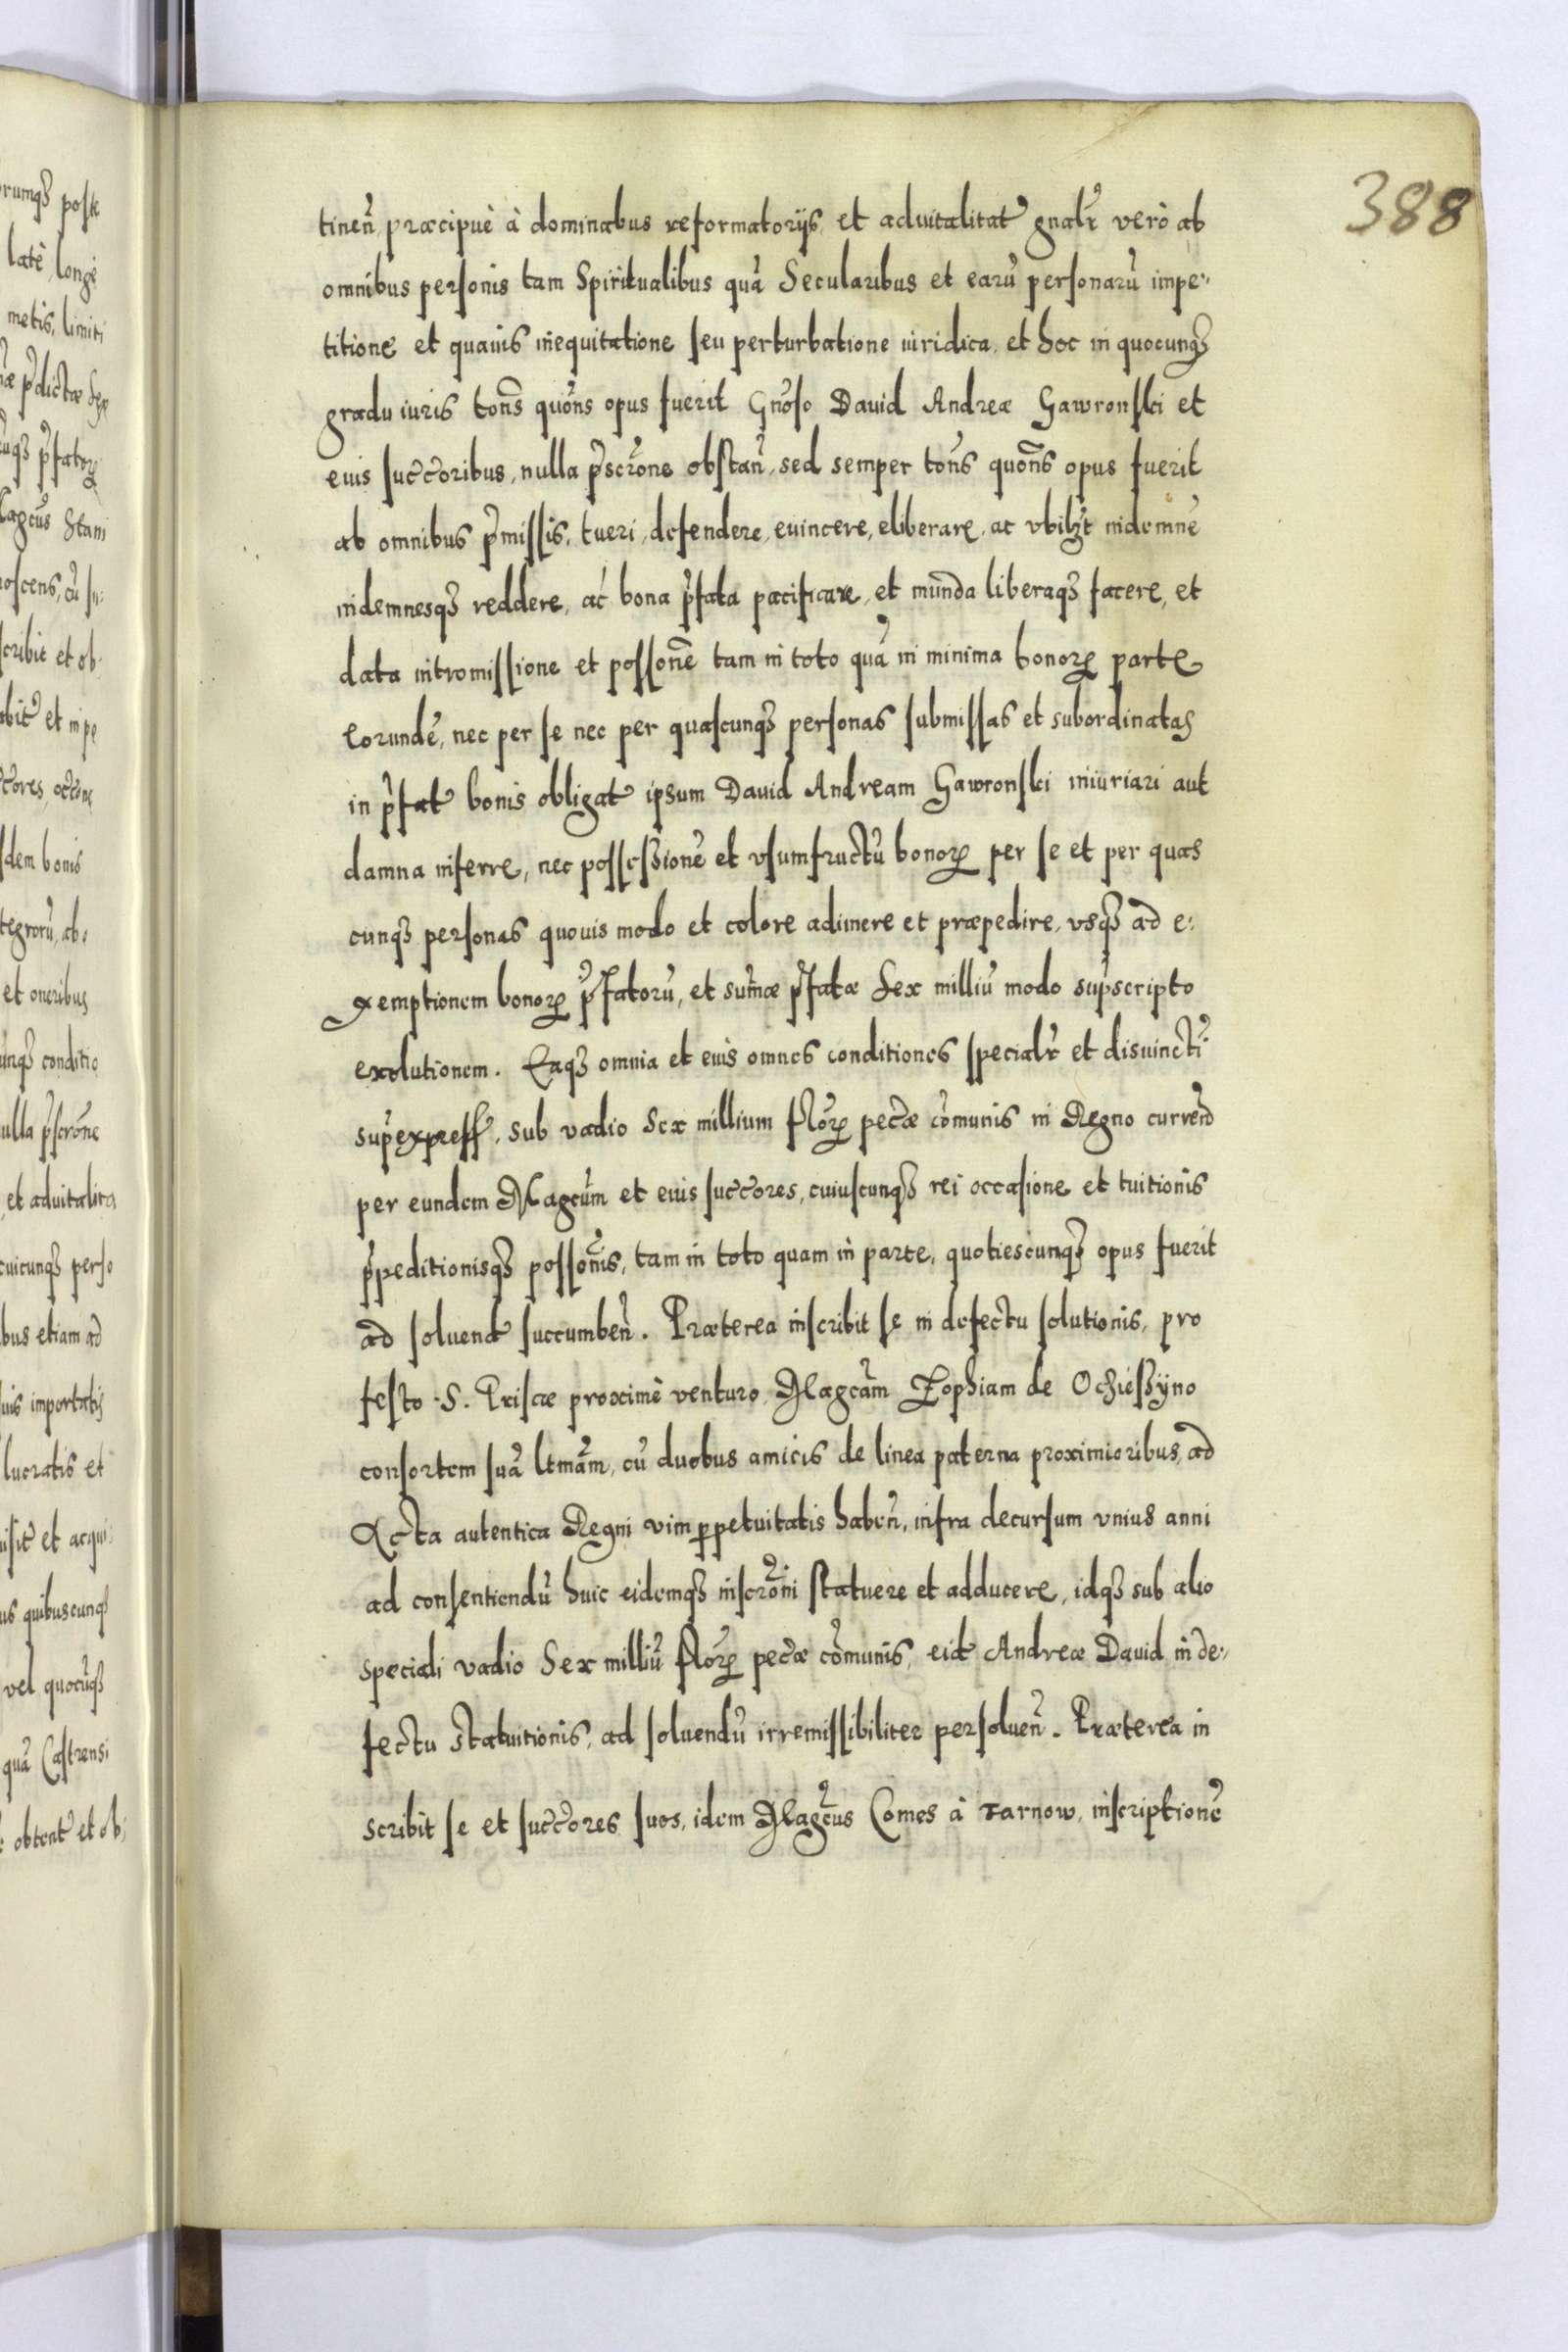 388
tineñ, præcipuè à dominabus reformatorijs, et aduitalitat gnalr verò ab
omnibus personis tam Spiritualibus quã Secularibus et earũ personarũ impe:
titione et quauis inequitatione seu perturbatione iuridica, et hoc in quocunqȝ
gradu iuris tõns quõns opus fuerit Gñoso Dauid Andreæ Gawronski et
eius succ̃oribus, nulla p̃scrõne obstañ, sed semper tõns quõns opus fuerit
ab omnibus p̃missis, tueri, defendere, euincere, eliberare, ac vbilzt indemnẽ
indemnesqȝ reddere, ac bona p̃fata pacificare, et munda liberaqȝ facere, et
data intromissione et possonẽ tam in toto quã in minima bonoꝝ parte
eorundẽ, nec per se nec per quascunqȝ personas submissas et subordinatas
in p̃fat bonis obligat ipsum Dauid Andream Gawronski iniuriari aut
damna inferre, nec possessionẽ et vsumfructũ bonoꝝ per se et per quas
cunqȝ personas quouis modo et colore adimere et præpedire, vsqȝ ad e:
xemptionem bonoꝝ p̃fatorũ, et sum̃æ p̃fatæ Sex milliũ modo sup̃scripto
exolutionem. Eaqȝ omnia et eius omnes conditiones specialr et disiuncti
sup̃express, sub vadio Sex millium floꝝ pec̃æ com̃unis in Regno curreñ
per eundem Magcũm et eius succ̃ores, cuiuscunqȝ rei occasione et tuitionis
p̃peditionisqȝ possõnis, tam in toto quam in parte, quotiescunqȝ opus fuerit
ad soluend succumbeñ. Præterea inscribit se in defectu solutionis, pro
festo S. Priscæ proximè venturo, Magcãm Zophiam de Ocziessyno
consortem suã ltmãm, cũ duobus amicis de linea paterna proximioribus, ad
Acta autentica Regni vim ꝑpetuitatis habeñ, infra decursum vnius anni
ad consentiendũ huic eidemqȝ inscrõni statuere et adducere, idqȝ sub alio
speciali vadio Sex milliũ floꝝ pec̃æ com̃unis, eid Andreæ Dauid in de:
fectu statuitionis, ad soluendũ irremissibiliter persolueñ. Præterea in
scribit se et succ̃ores suos, idem Magcũs Comes à Tarnow, inscriptionẽ